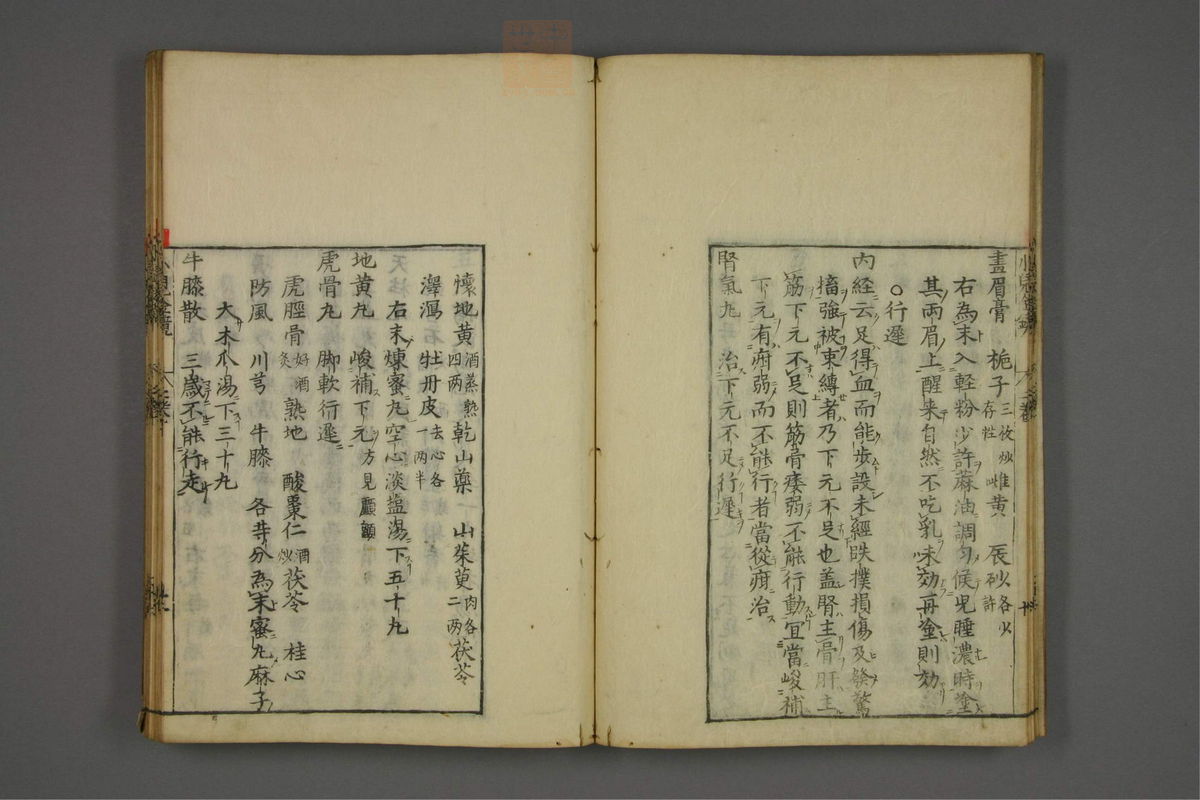 畫眉膏 梔子三枚炒存性 雄黄 辰砂各少許
右為末入軽粉少許蔴油調匀候児睡濃時塗
其兩眉上醒来自然不吃乳未効再塗則効
○行遲
内経云足得血而能歩設未經跌撲損傷及發驚
搐強被束縛者乃下元不足也盖腎主骨肝主
筋下元不足則筋骨痿弱不能行動宜當峻補
下元有疳弱而不能行者當從疳治
腎氣丸 治下元不足行遲
懷地黄酒蒸熟四两 乾山藥 山茱萸肉各二两 茯苓
澤瀉 牡丹皮去心各一两半
右末煉蜜丸空心淡塩湯下五十丸
地黄丸 峻補下元方見顱顖
虎骨丸 脚軟行遲
虎脛骨好酒炙 熟地 酸棗仁酒炒 茯苓 桂心
防風 川芎 牛膝 各等分為末蜜丸麻子
大木瓜湯下三十丸
牛膝散 三歳不能行走